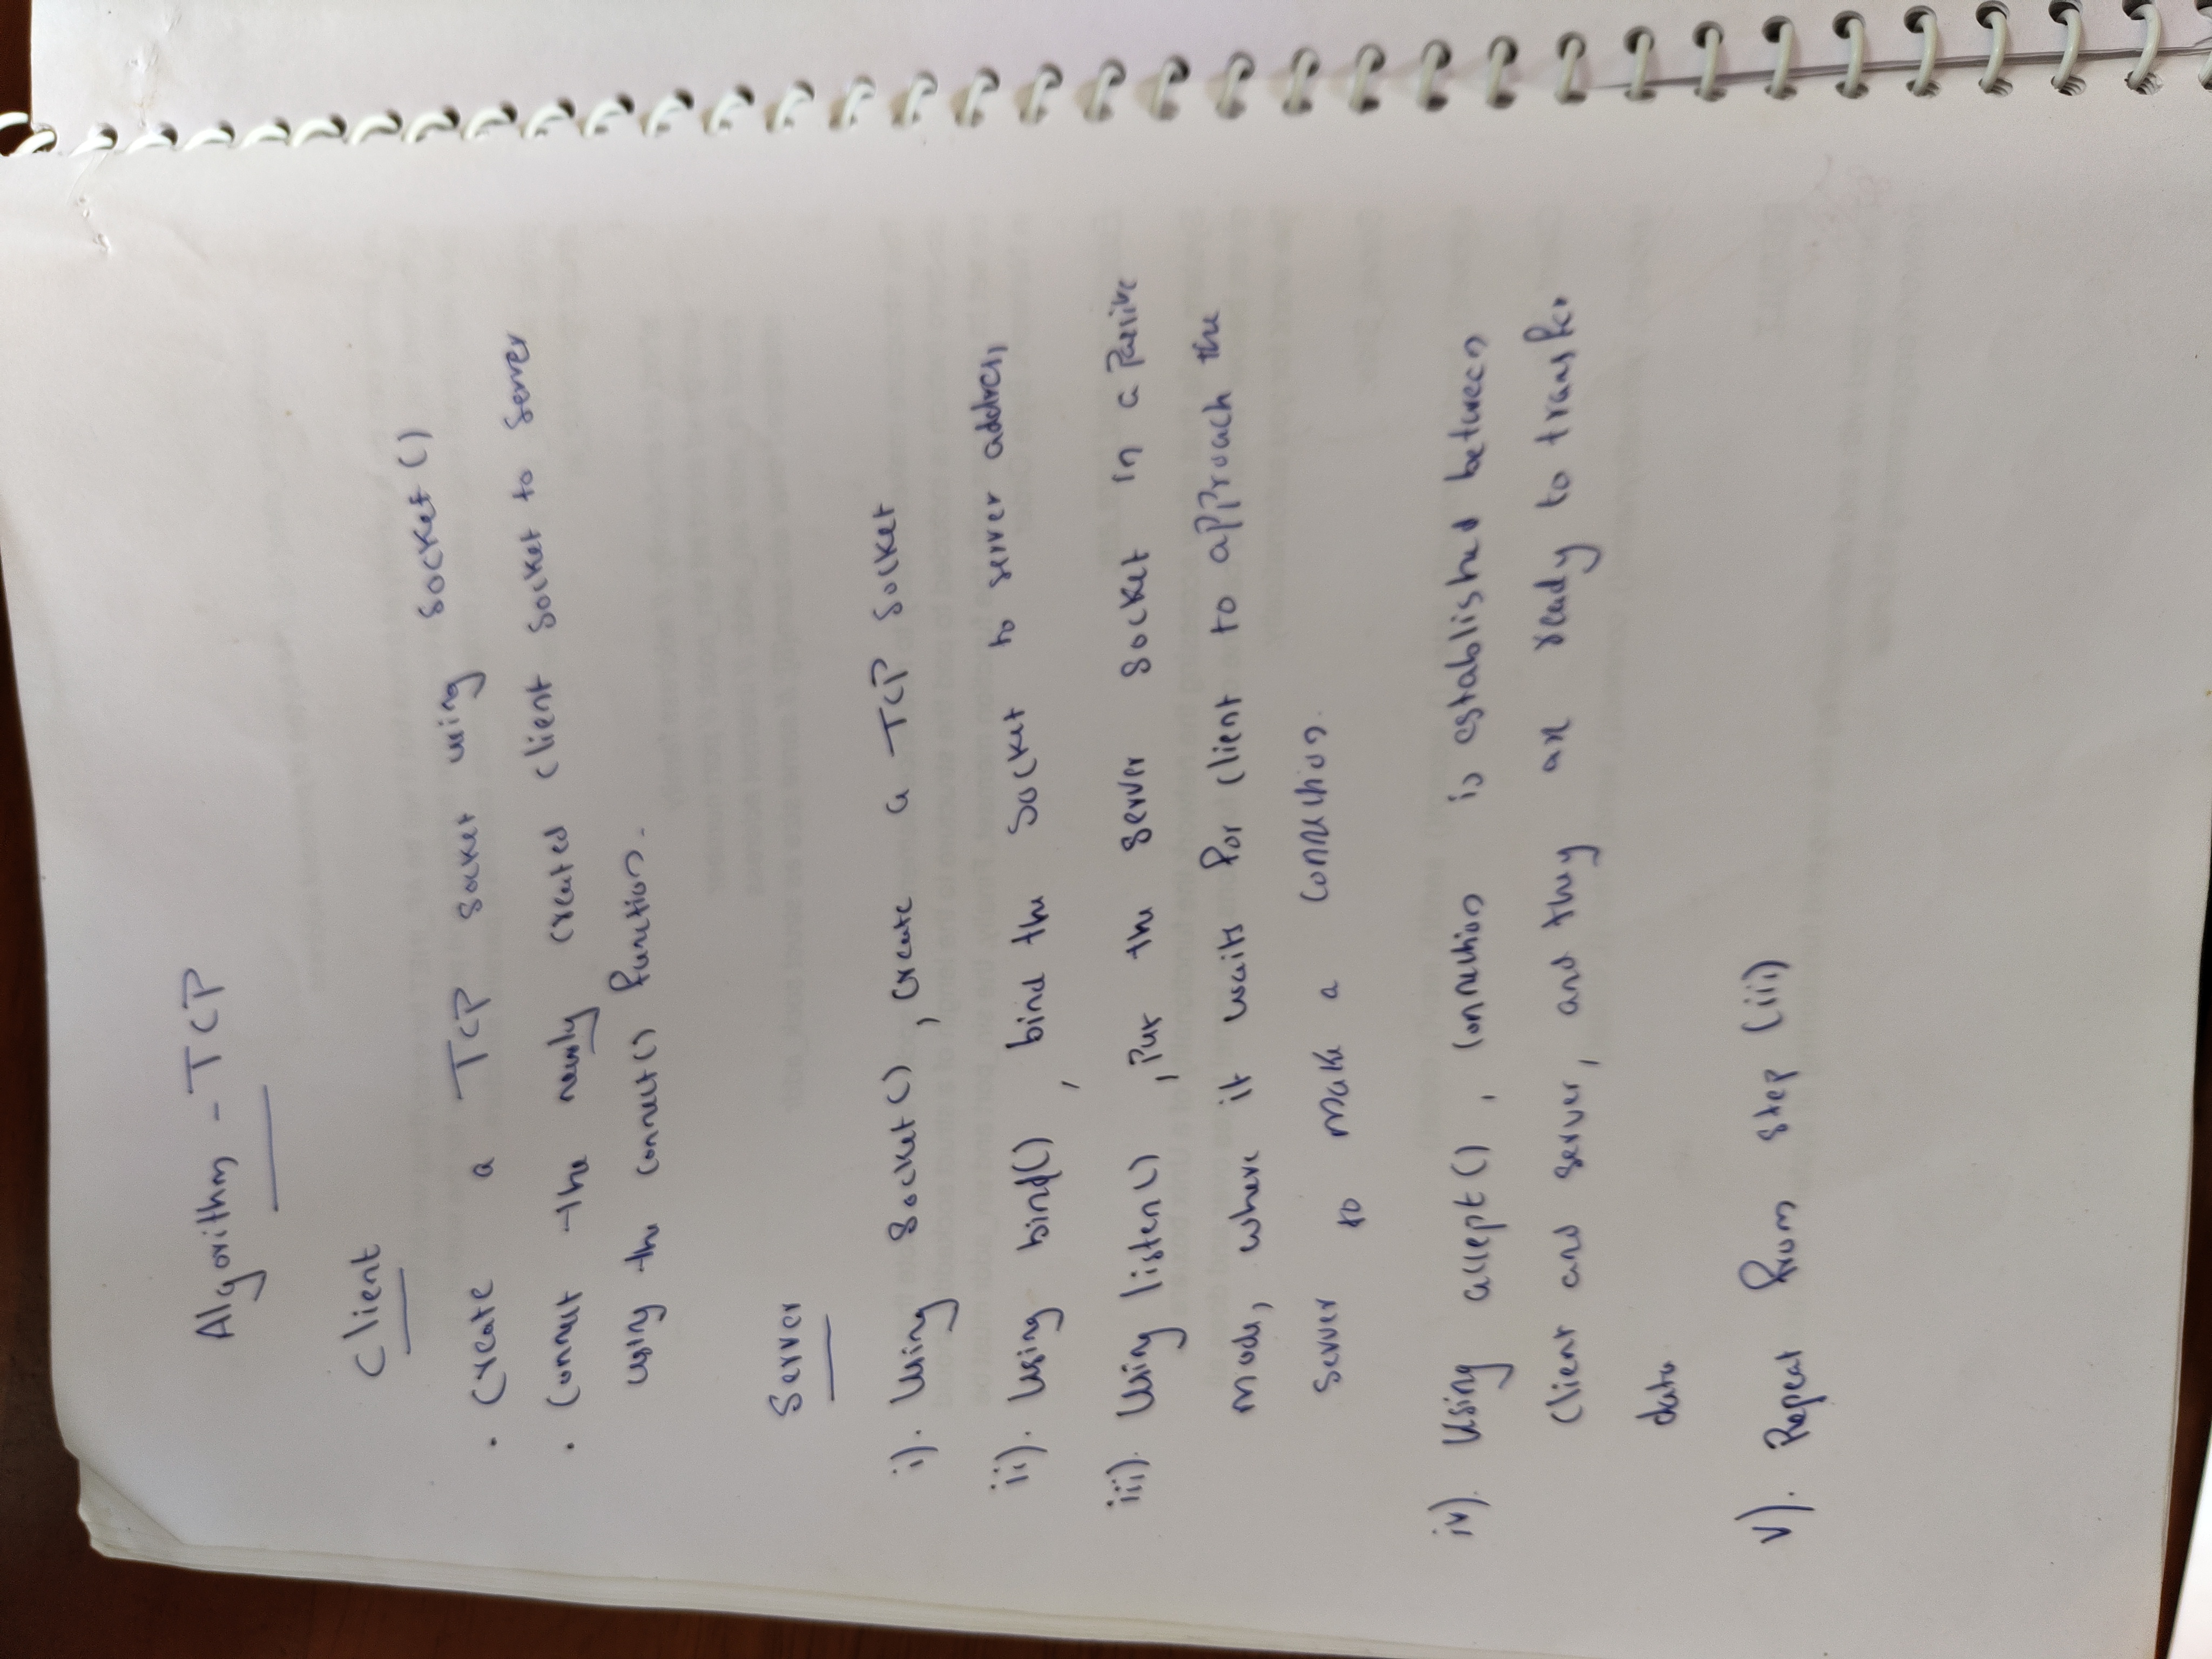 Algorithm - TCP
Client
. Create a TCP socket using socket()
. Connect the newly created client socket to server
using the connect() function.
Server
i). Using socket(), create a TCP socket
ii). Using bind(), bind the socket to server address,
iii). Using listen(), Put the server socket in a Passive
mode, where it waits for client to approach the
server to make a connection.
iv). Using accept(), connection is established between
client and server, and they are ready to transfer
data
v). Repeat from step (iii)